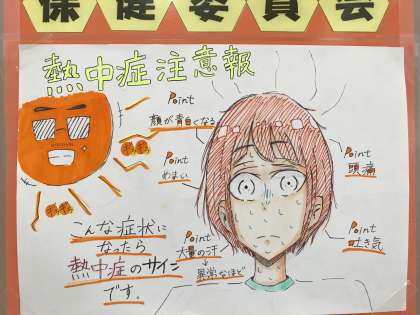 保健委員会
熱中症注意報
Point
顔が青白くなる
Point
めまい
Point
頭痛
Point
大量の汗
異常なほど
Point
吐き気
こんな症状に
なったら
熱中症のサイン
です。